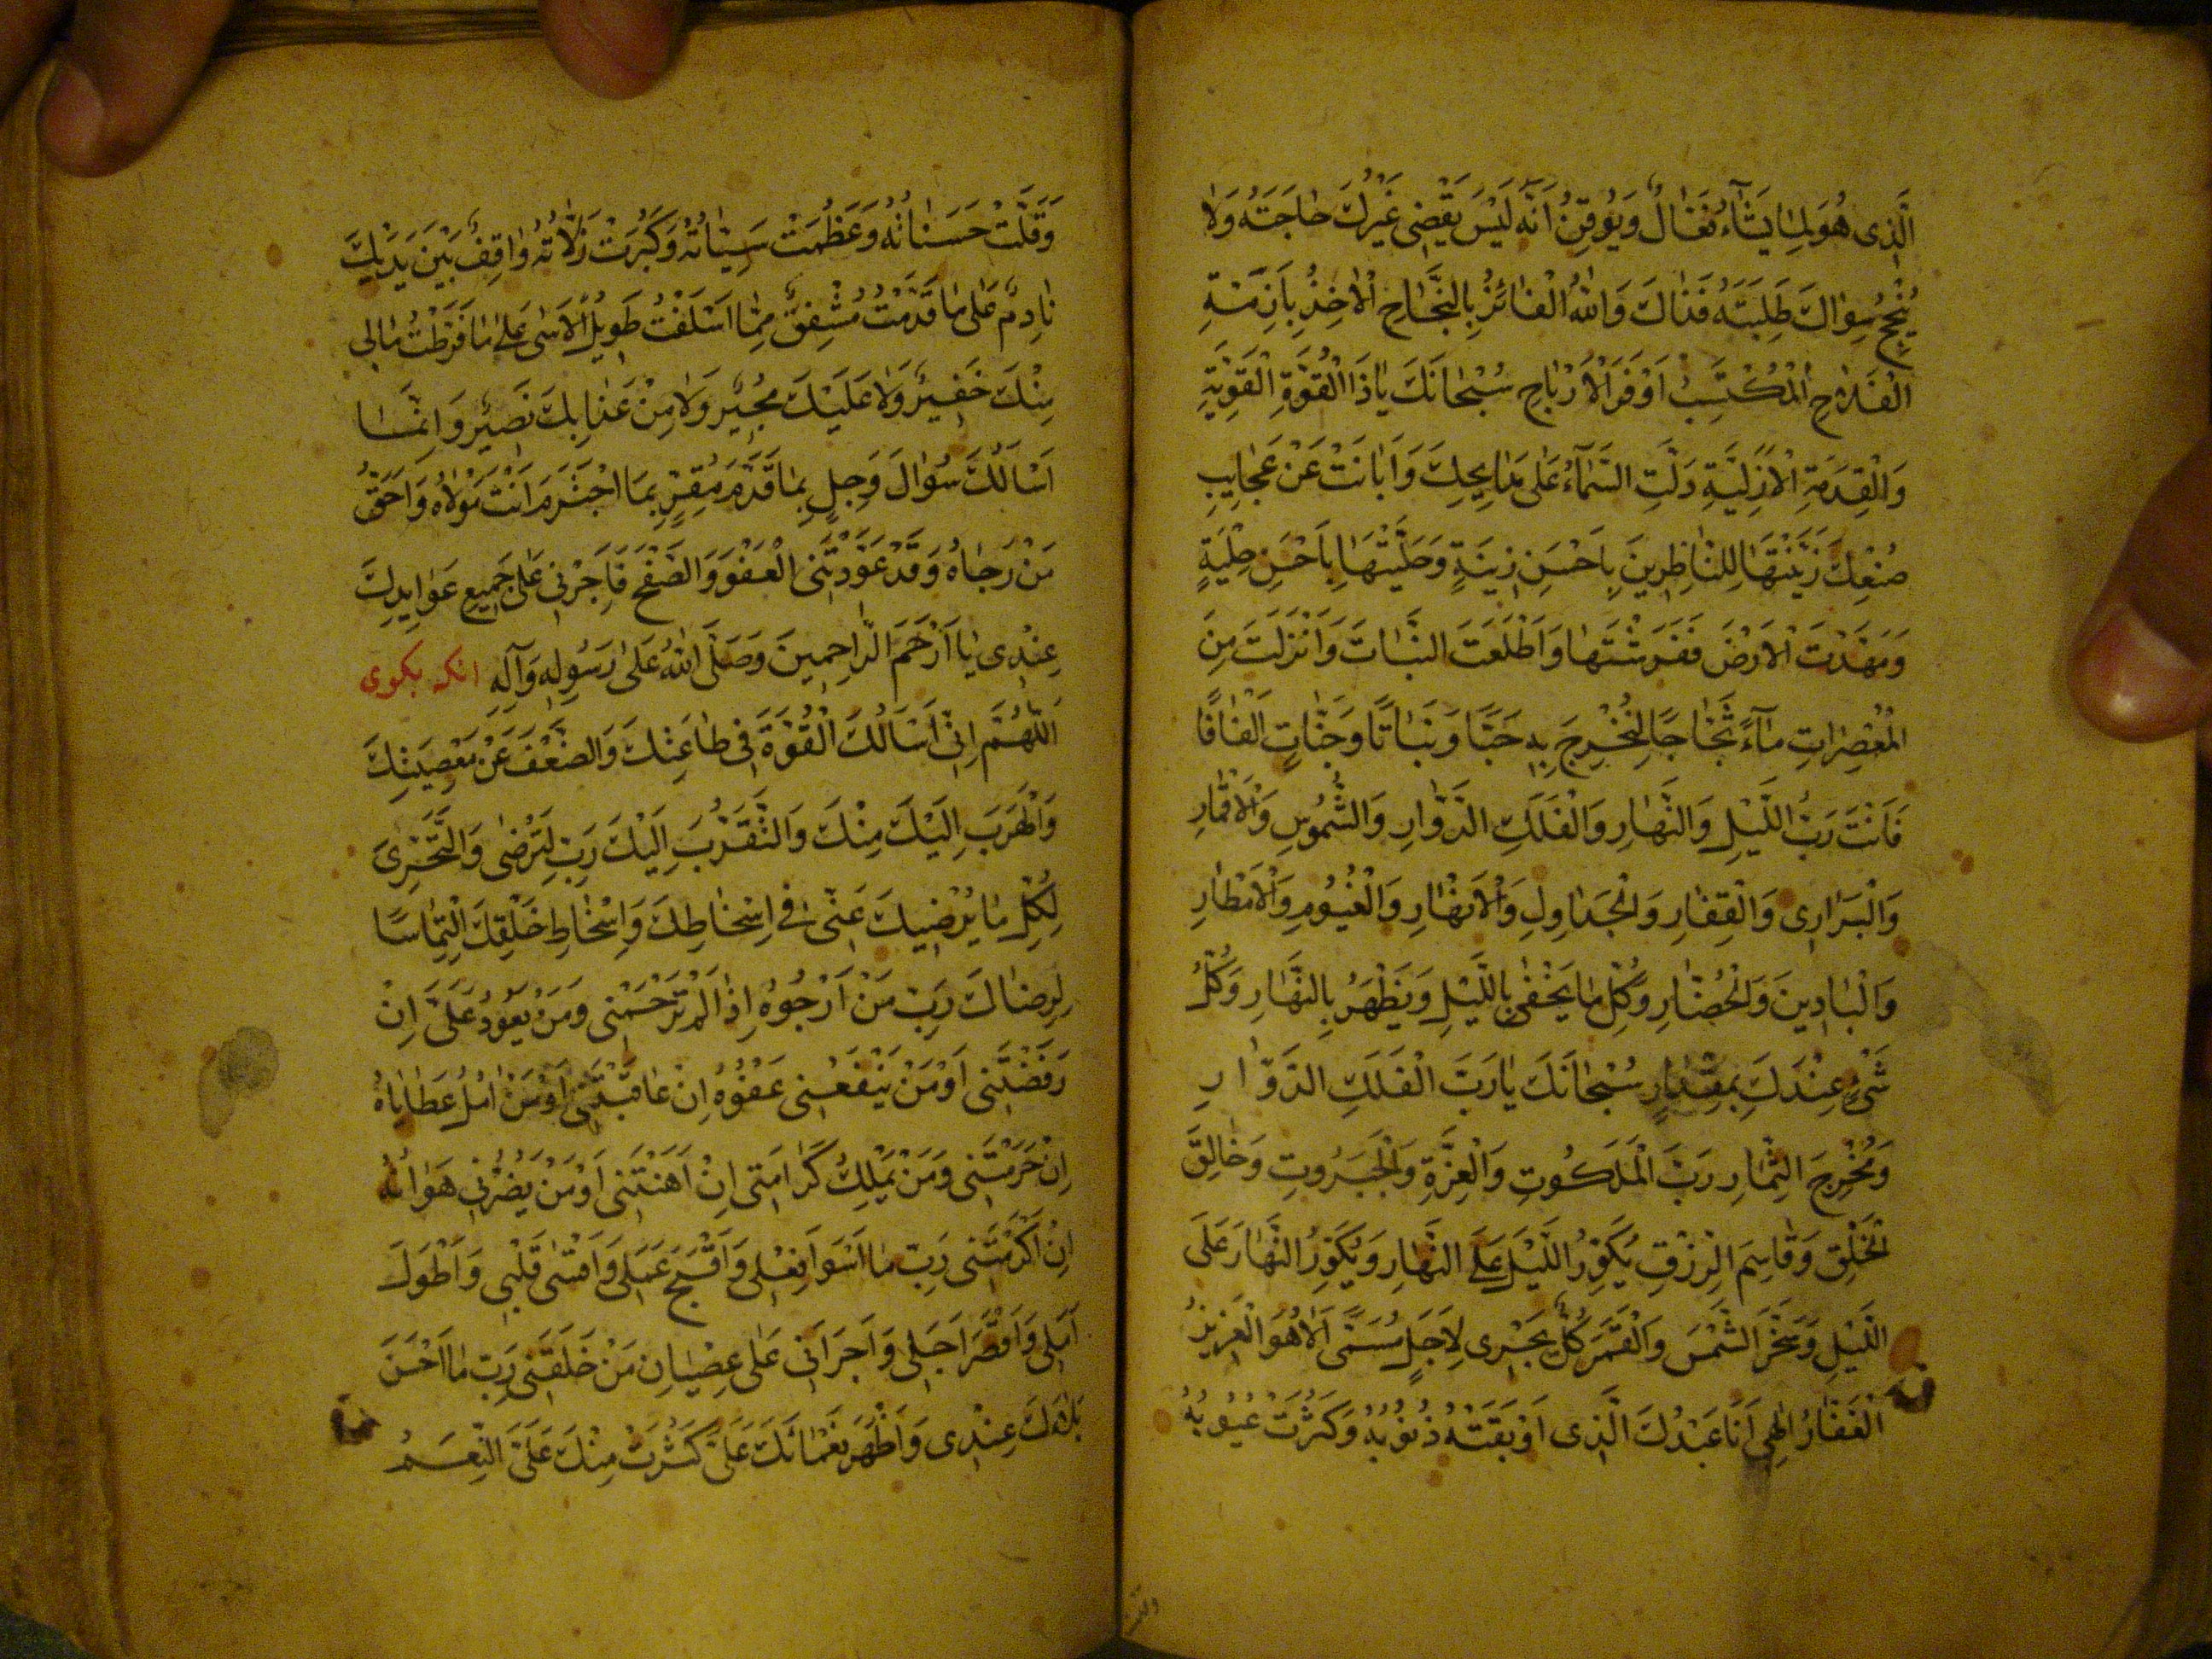 الَّذِى هُوَ لِمَا يَشَآءُ فَعَّالٌ وَيُوقِنُ اَنَّهُ لَيْسَ يَقْضِى غَيْرُكَ حَاجَتَهُ وَلَا
يُنْجِحُ سِوَاكَ طَلِبَتَهُ فَذَاكَ وَاللهُ الْفَائِزُ بِالنَّجَاحِ الْاٰخِذُ بِاَزِمَّةِ
الْفَلَاحِ الْمُكْتَسِبُ اَوْفَرَ الْاَرْبَاحِ سُبْحَانَكَ يَا ذَا الْقُوَّةِ الْقَوِيَّةِ
وَالْقِدَمَةِ الْاَزَلِيَّةِ دَلَّتِ السَّمَآءُ عَلٰى مَدَايِحِكَ وَاَبَانَتْ عَنْ عَجَايِبِ
صُنْعِكَ زَيَّنْتَهَا لِلنَّاظِرِينَ بِاَحْسَنِ زِينَةٍ وَحَلَّيْتَهَا بِاَحْسَنِ حِلْيَةٍ
وَمَهَّدْتَ الْاَرْضَ فَفَرَشْتَهَا وَاَطْلَعْتَ النَّبَاتَ وَاَنْزَلْتَ مِنَ
الْمُعْصِرَاتِ مَآءً ثَجَّاجًا لِنُخْرِجَ بِهِ حَبًّا وَنَبَاتًا وَجَنَّاتٍ اَلْفَافًا
فَاَنْتَ رَبُّ اللَّيْلِ وَالنَّهَارِ وَالْفَلَكِ الدَّوَّارِ وَالشُّمُوسِ وَالْاَقْمَارِ
وَالْبَرَارِى وَالْقِفَارِ وَالْجَدَاوِلِ وَالْاَنْهَارِ وَالْغُيُومِ وَالْاَمْطَارِ
وَالْبَادِينَ وَالْحُضَّارِ وَكُلِّ مَا يَخْفٰى بِاللَّيْلِ وَيَظْهَرُ بِالنَّهَارِ وَكُلُّ
شَىْءٍ عِنْدَكَ بِمِقْدَارٍ سُبْحَانَكَ يَا رَبَّ الْفَلَكِ الدَّوَّارِ
وَمُخْرِجَ الثِّمَارِ رَبَّ الْمَلَكُوتِ وَالْعِزَّةِ وَالْجَبَرُوتِ وَخَالِقَ
الْخَلْقِ وَقَاسِمَ الرِّزْقِ يُكَوِّرُ اللَّيْلَ عَلَى النَّهَارِ وَيُكَوِّرُ النَّهَارَ عَلَى
اللَّيْلِ وَسَخَّرَ الشَّمْسَ وَالْقَمَرَ كُلٌّ يَجْرِى لِاَجَلٍ مُسَمًّى اَلَا هُوَ الْعَزِيزُ
الْغَفَّارُ اِلٰهِى اَنَا عَبْدُكَ الَّذِى اَوْبَقَتْهُ ذُنُوبُهُ وَكَثُرَتْ عُيُوبُهُ
وَقَلَّتْ حَسَنَاتُهُ وَعَظُمَتْ سَيِّئَاتُهُ وَكَبُرَتْ زَلَّاتُهُ وَاقِفٌ بَيْنَ يَدَيْكَ
نَادِمٌ عَلٰى مَا قَدَّمْتُ مُشْفِقٌ مِمَّا اَسْلَفْتُ طَوِيلُ الْاَسٰى عَلٰى مَا فَرَّطْتُ مَا لِى
مِنْكَ خَفِيرٌ وَلَا عَلَيْكَ مُجِيرٌ وَلَا مِنْ عَذَابِكَ نَصِيرٌ وَاِنَّمَا
اَسْاَلُكَ سُؤَالَ وَجِلٍ بِمَا قَدَّمَ مُقِرٍّ بِمَا اجْتَرَمَ اَنْتَ مَوْلَاهُ وَاَحَقُّ
مَنْ رَجَاهُ وَقَدْ عَوَّدْتَنِى الْعَفْوَ وَالصَّفْحَ فَاَجْرِنِى عَلٰى جَمِيعِ عَوَايِدِكَ
عِنْدِى يَا اَرْحَمَ الرَّاحِمِينَ وَصَلَّى اللهُ عَلٰى رَسُولِهِ وَآلِهِ انكه بكوى
اَللّٰهُمَّ اِنِّى اَسْاَلُكَ الْقُوَّةَ فِى طَاعَتِكَ وَالضَّعْفَ عَنْ مَعْصِيَتِكَ
وَالْهَرَبَ اِلَيْكَ مِنْكَ وَالتَّقَرُّبَ اِلَيْكَ رَبِّ لِتَرْضٰى وَالتَّحَرِّىَ
لِكُلِّ مَا يُرْضِيكَ عَنِّى فِى اِسْخَاطِكَ وَاِسْخَاطِ خَلْقِكَ الْتِمَاسًا
لِرِضَاكَ رَبِّ مَنْ اَرْجُوهُ اِذَا لَمْ تَرْحَمْنِى وَمَنْ يَعُودُ عَلَىَّ اِنْ
رَفَضْتَنِى اَوْ مَنْ يَنْفَعُنِى عَفْوُهُ اِنْ عَاقَبْتَنِى اَوْ مَنْ اٰمُلُ عَطَايَاهُ
اِنْ حَرَمْتَنِى وَمَنْ يَمْلِكُ كَرَامَتِى اِنْ اَهَنْتَنِى اَوْ مَنْ يَضُرُّنِى هَوَانُهُ
اِنْ اَكْرَمْتَنِى رَبِّ مَا اَسْوَاَ فِعْلِى وَاَقْبَحَ عَمَلِى وَاَقْسٰى قَلْبِى وَاَطْوَلَ
اَمَلِى وَاَقْصَرَ اَجَلِى وَاَجْرَاَنِى عَلٰى عِصْيَانِ مَنْ خَلَقَنِى رَبِّ مَا اَحْسَنَ
بَلَاءَكَ عِنْدِى وَاَظْهَرَ نَعْمَائَكَ عَلَىَّ كَثُرَتْ مِنْكَ عَلَىَّ النِّعَمُ